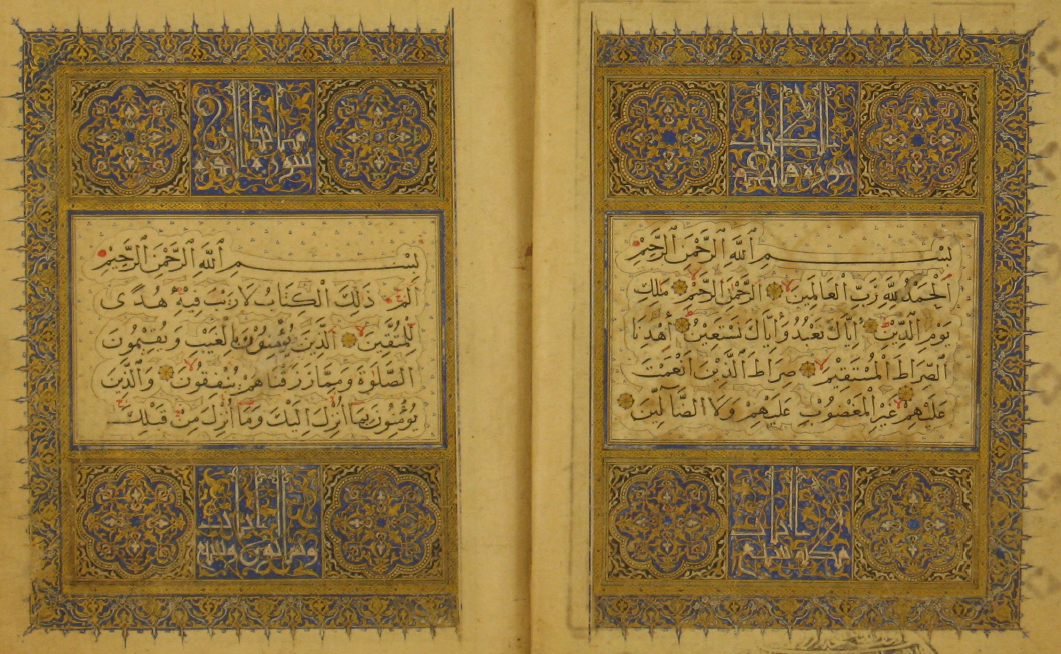 سورة فاتحة الكتاب
بسم الله الرحمن الرحيم
الحمد لله رب العالمين الرحمن الرحيم ملك
يوم الدين اياك نعبد واياك نستعين اهدنا
الصراط المستقيم صراط الذين انعمت
عليهم غير المغضوب عليهم ولا الضالين
سورة البقرة
بسم الله الرحمن الرحيم
الم ذلك الكتاب لا ريب فيه هدى
للمتقين الذين يؤمنون بالغيب ويقيمون
الصلوة ومما رزقناهم ينفقون والذين
يؤمنون بما أنزل اليك وما أنزل من قبلك